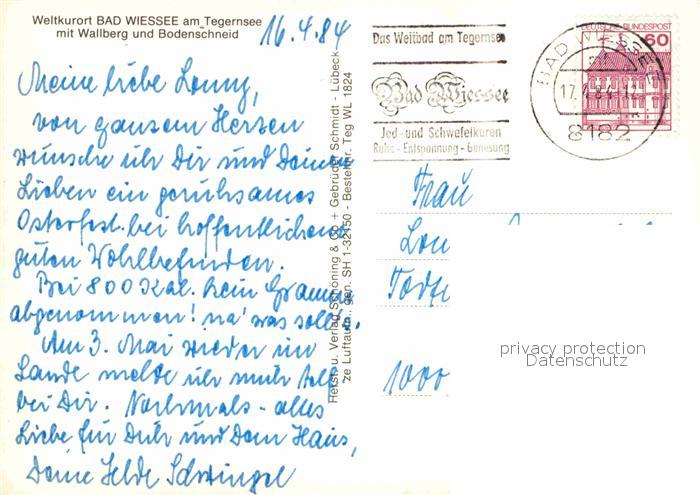 Weltkurort BAD WIESSEE am Tegernsee
mit Wallberg und Bodenschneid
16.4.84
Meine liebe Lonny,
von ganzem Herzen
wünsche ich Dir und Deinen
Lieben ein geruhsames
Osterfest bei hoffentlichem
guten Wohlbefinden.
Bei 800 Kal. kein Gramm
abgenommen! na' was soll's.
Am 3. Mai wieder im
Lande melde ich mich
bei Dir. Nochmals - alles
Liebe für Dich und Dein Haus,
Deine Hilde Schwingel
Herst. u. Verlag Schöning & Co + Gebrüder Schmidt - Lübeck
ze Luftaufn. gen. SH 1-32150 - Bestellnr. Teg WL 1824
Das Weltbad am Tegernsee
Bad Wiessee
Jod- und Schwefelkuren
Ruhe - Entspannung - Genesung
DEUTSCHE BUNDESPOST
60
BAD WIESSEE
17.4.84-12
8182
Frau
Lon
1000
privacy protection
Datenschutz